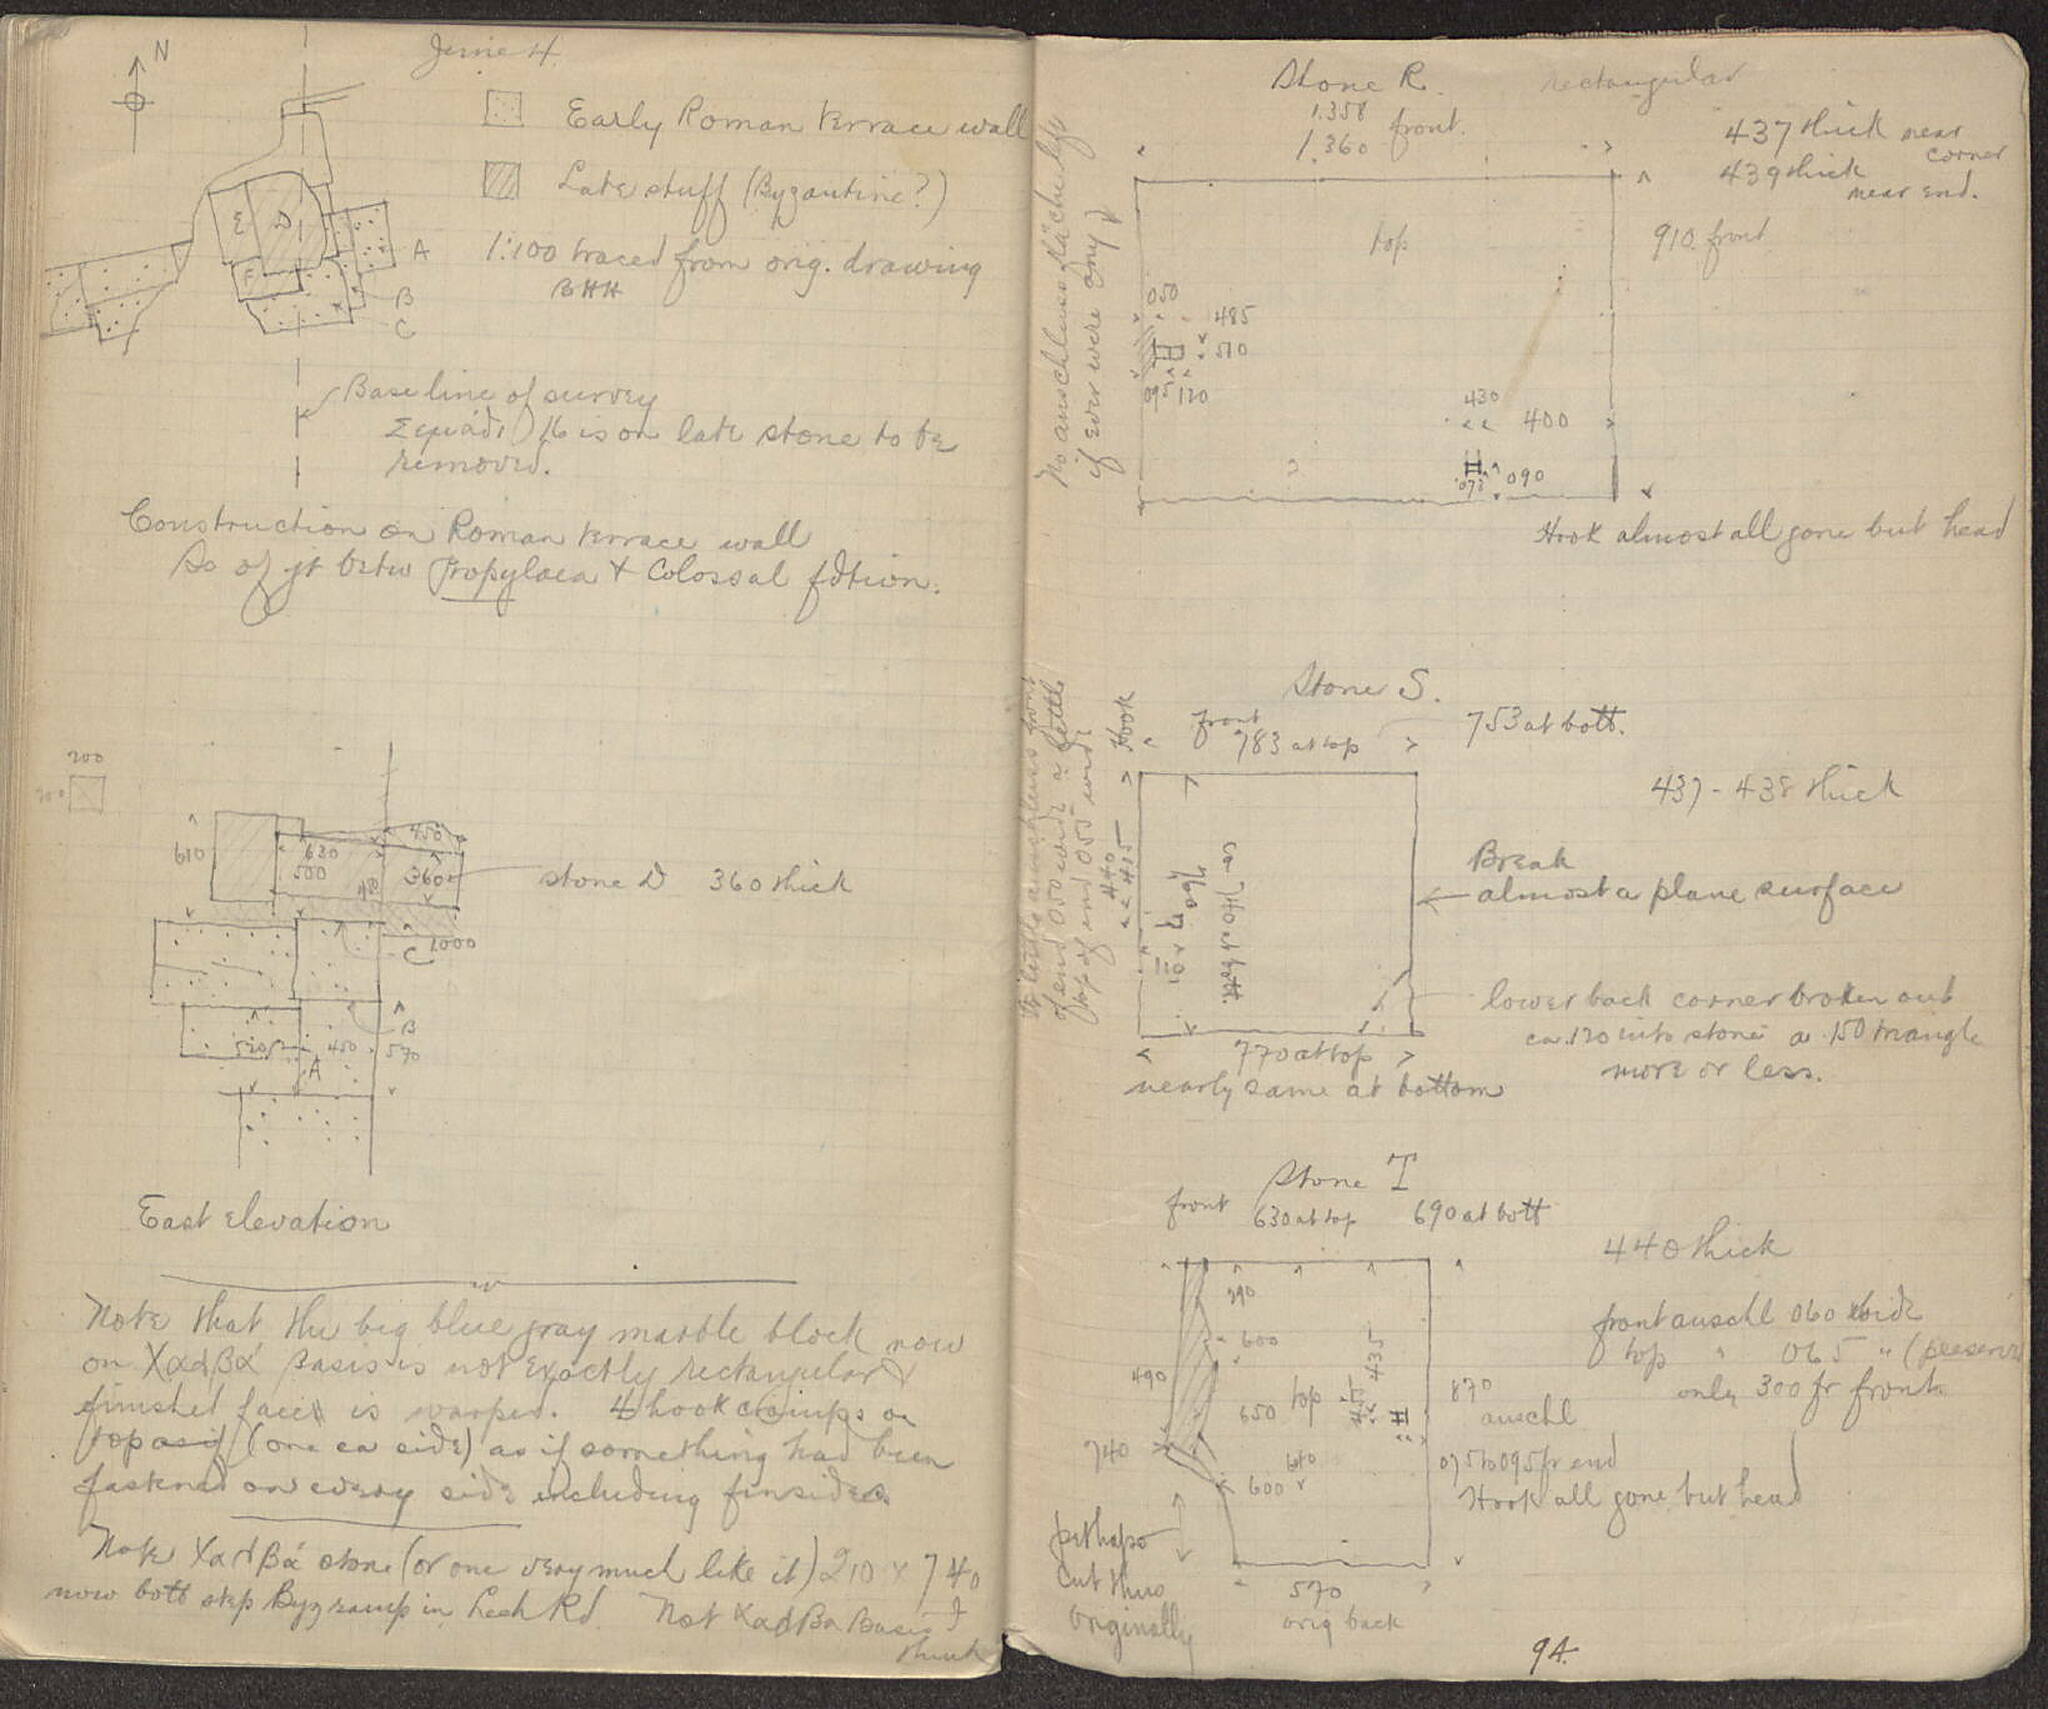 N
June 4
Early Roman terrace wall
Late stuff (Byzantine?)
1:100 traced from orig. drawing
BHH
E
D
F
A
B
C
Base line of survey
16 is on late stone to be
removed.
Construction on Roman terrace wall
So of jt betw Propylaea + Colossal fdtion.
200
200
610
630
500
450
360
stone D 360 thick
C
1000
B
520
450
570
A
East elevation
Note that the big blue gray marble block now
on Χαδβα Basis is not exactly rectangular &
finished face is warped. 4 hook clamps on
top as if (one ea side) as if something had been
fastened on every side including finsides.
Note Χαδβα stone (or one very much like it) 210 x 740
now bott step Byz ramp in Lech Rd Not Χαδβα Basis I
think
Stone R. rectangular
1.358
1.360 front.
437 thick near
corner
439 thick
near end.
No anschlussfläche left
if ever were any
top
910 front
050
485
510
095 120
430
400
090
Hook almost all gone but head
Stone S.
Hook
front
783 at top
753 at bott.
437-438 thick
of end 050 wide a little
top of end 055 wide
440
425
760
ca 740 at bott.
Break
almost a plane surface
lower back corner broken out
ca. 120 into stone a .150 triangle
more or less.
770 at top
nearly same at bottom
Stone T
front 630 at top 690 at bott
440 thick
290
600
490
650
top
435
740
600
610
front anschl 060 wide
top " 065 "
only 300 fr front
870
anschl
075 to 095 fr end
Hook all gone but head
perhaps
cut thus
originally
570
orig back
94.